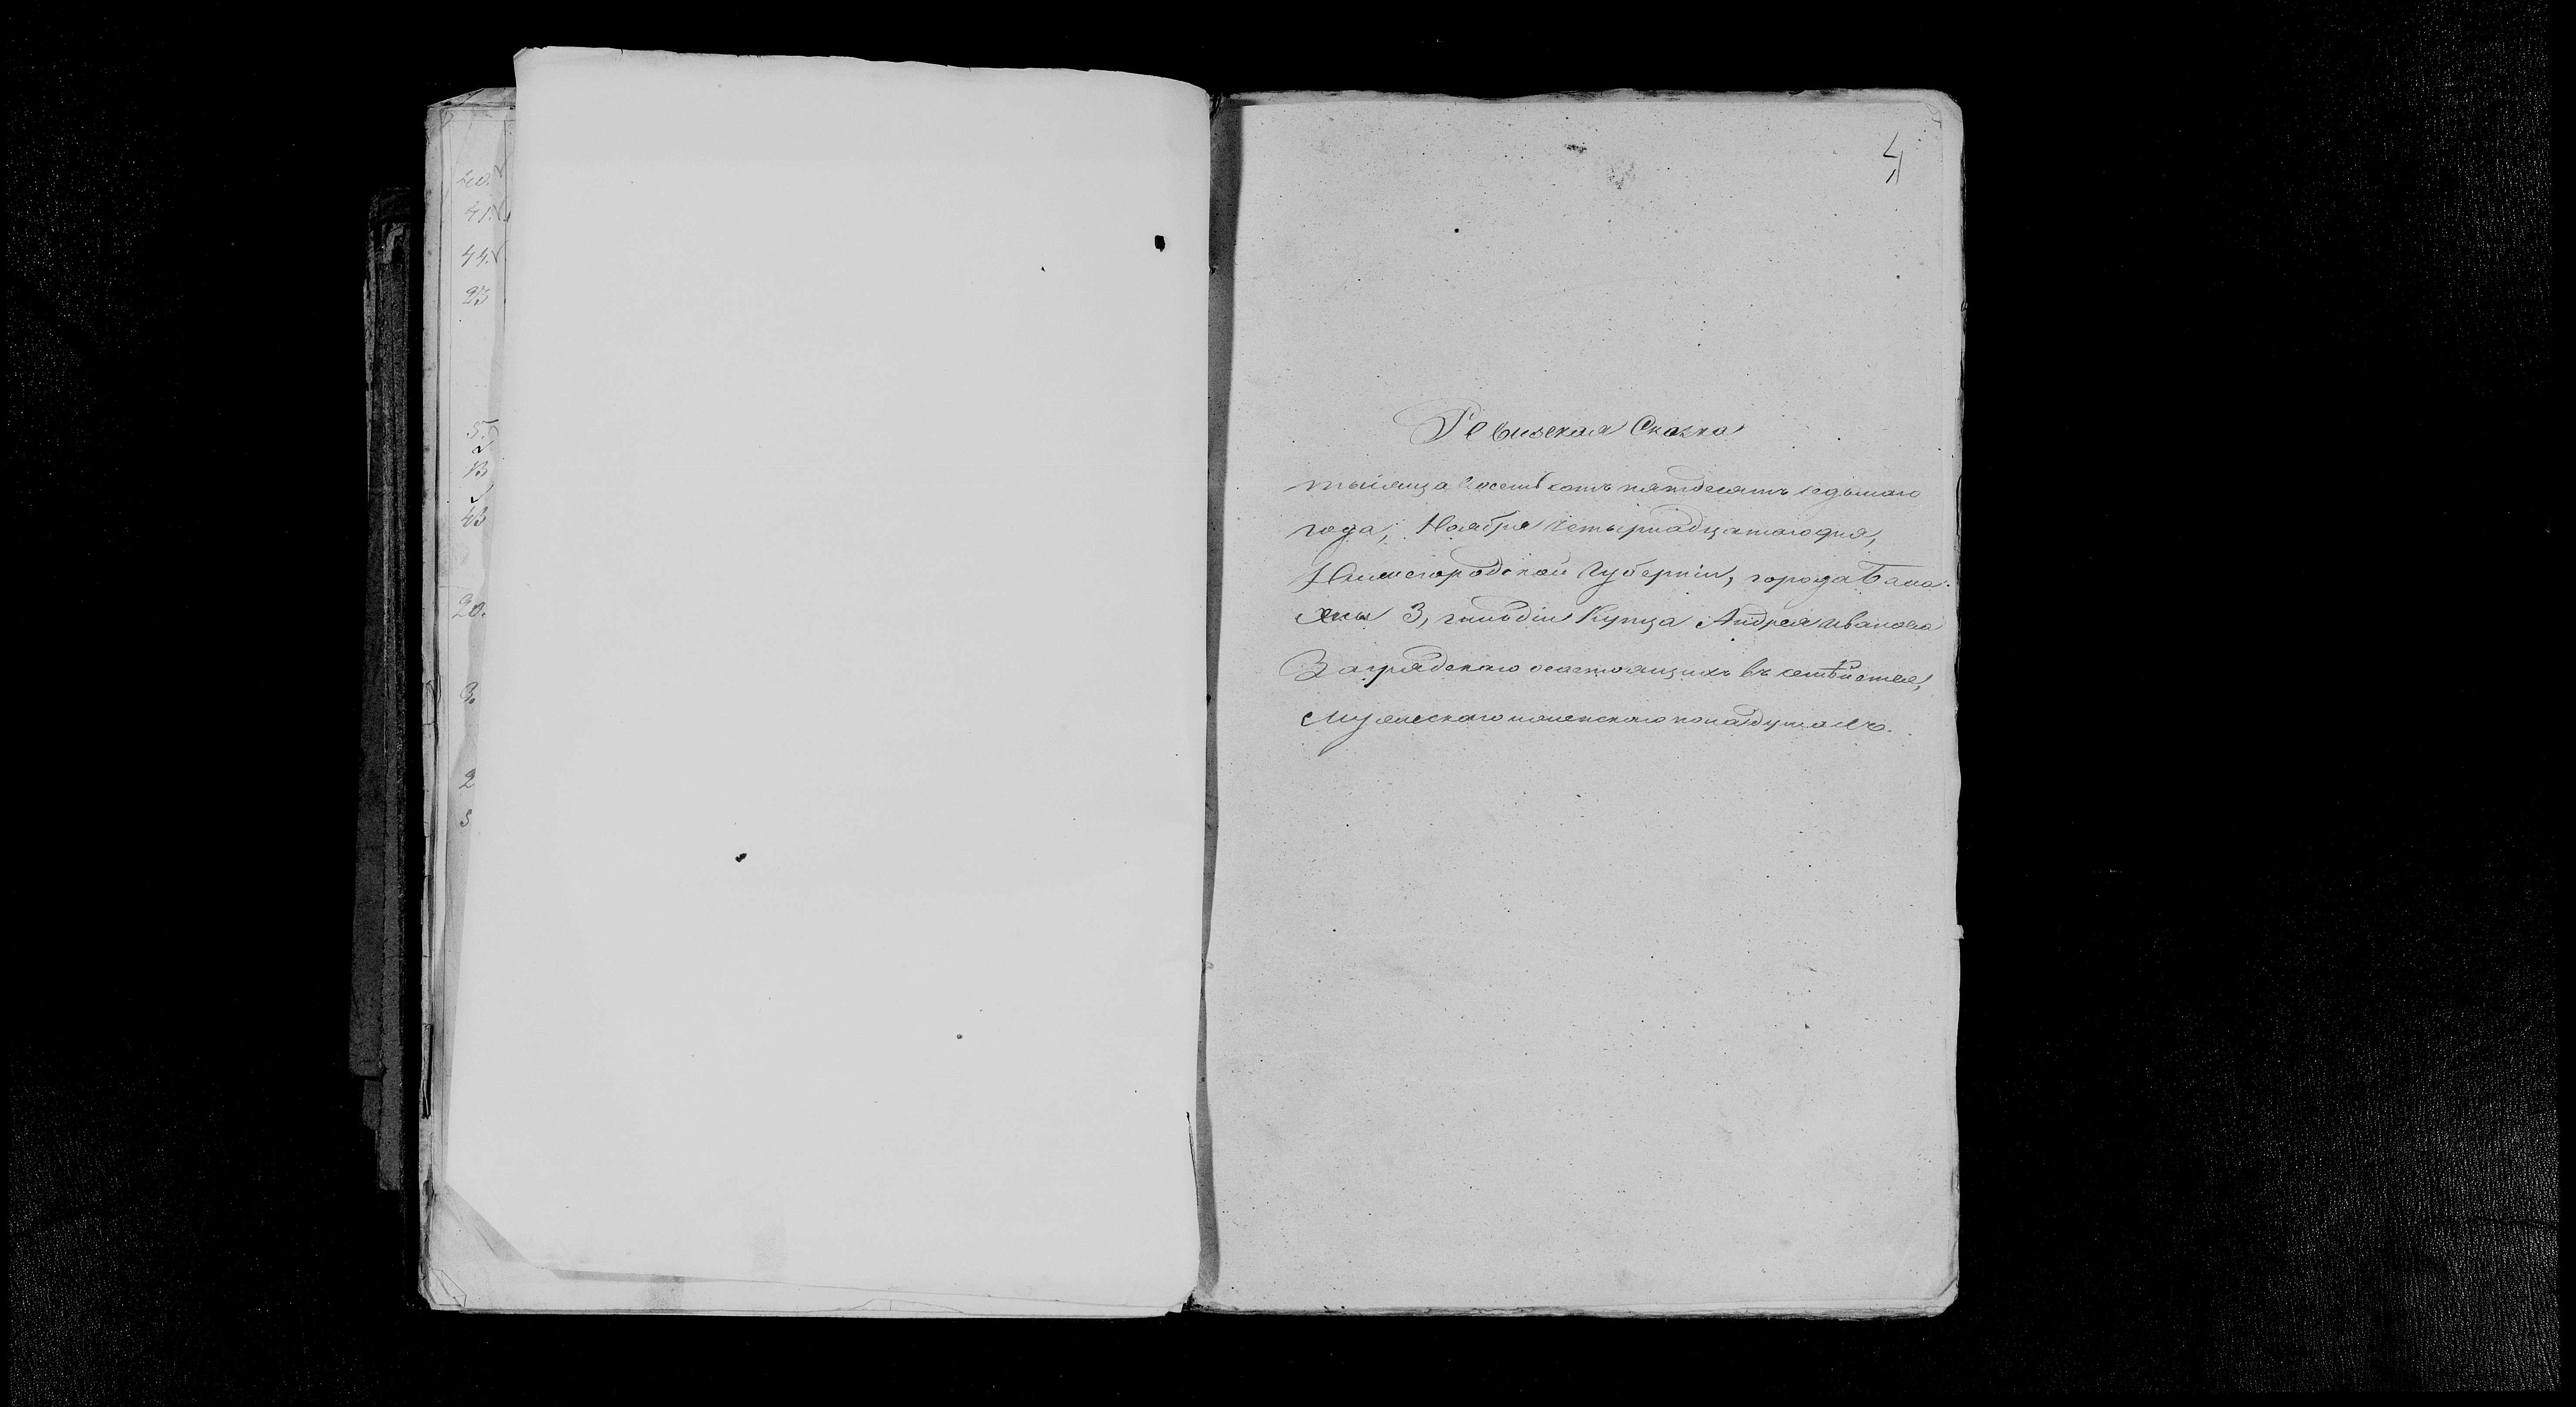 40.
41.
44.
23
5.
2.
13
43
20.
3.
2
5
4
Ревизская Сказка
тысяща восемсотъ пятдесятъ седьмаго
года, Ноября четырнадцатаго дня,
Нижегородской Губерніи, города Бала-
хны 3, гильдіи Купца Андрея Иванова
Заградскаго состоящихъ въ семѣйстве,
мужескаго и женскаго пола душахъ.